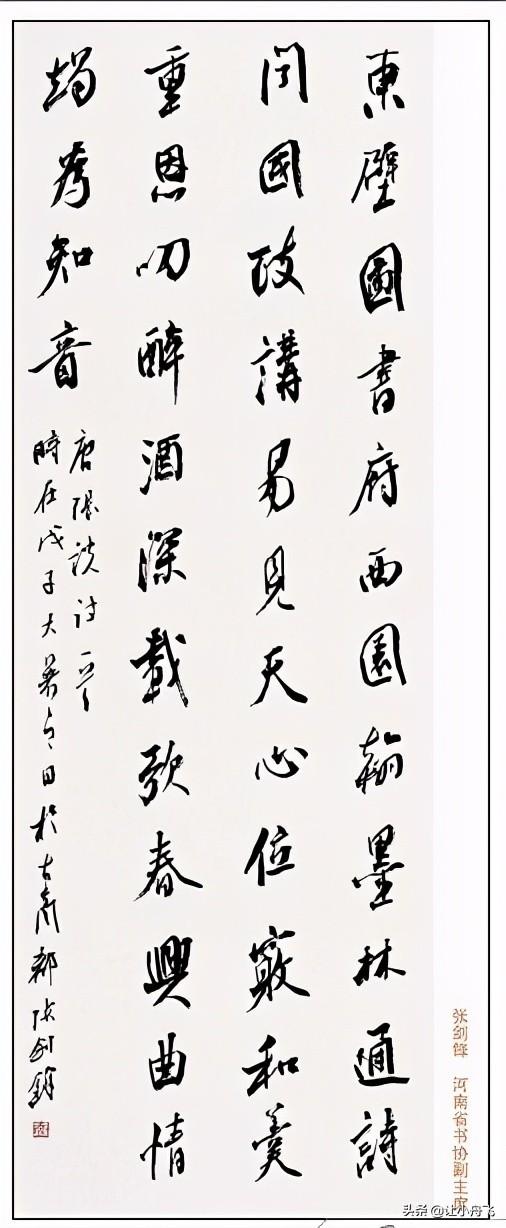 東壁圖書府西園翰墨林通詩
聞國政講易見天心位竊和羹
重恩叨醉酒深載歌春興曲情
竭為知音
唐張說詩一首
時在戊子大暑之日於古商都張劍鋒
张剑锋 河南省书协副主席
头条 @让小舟飞